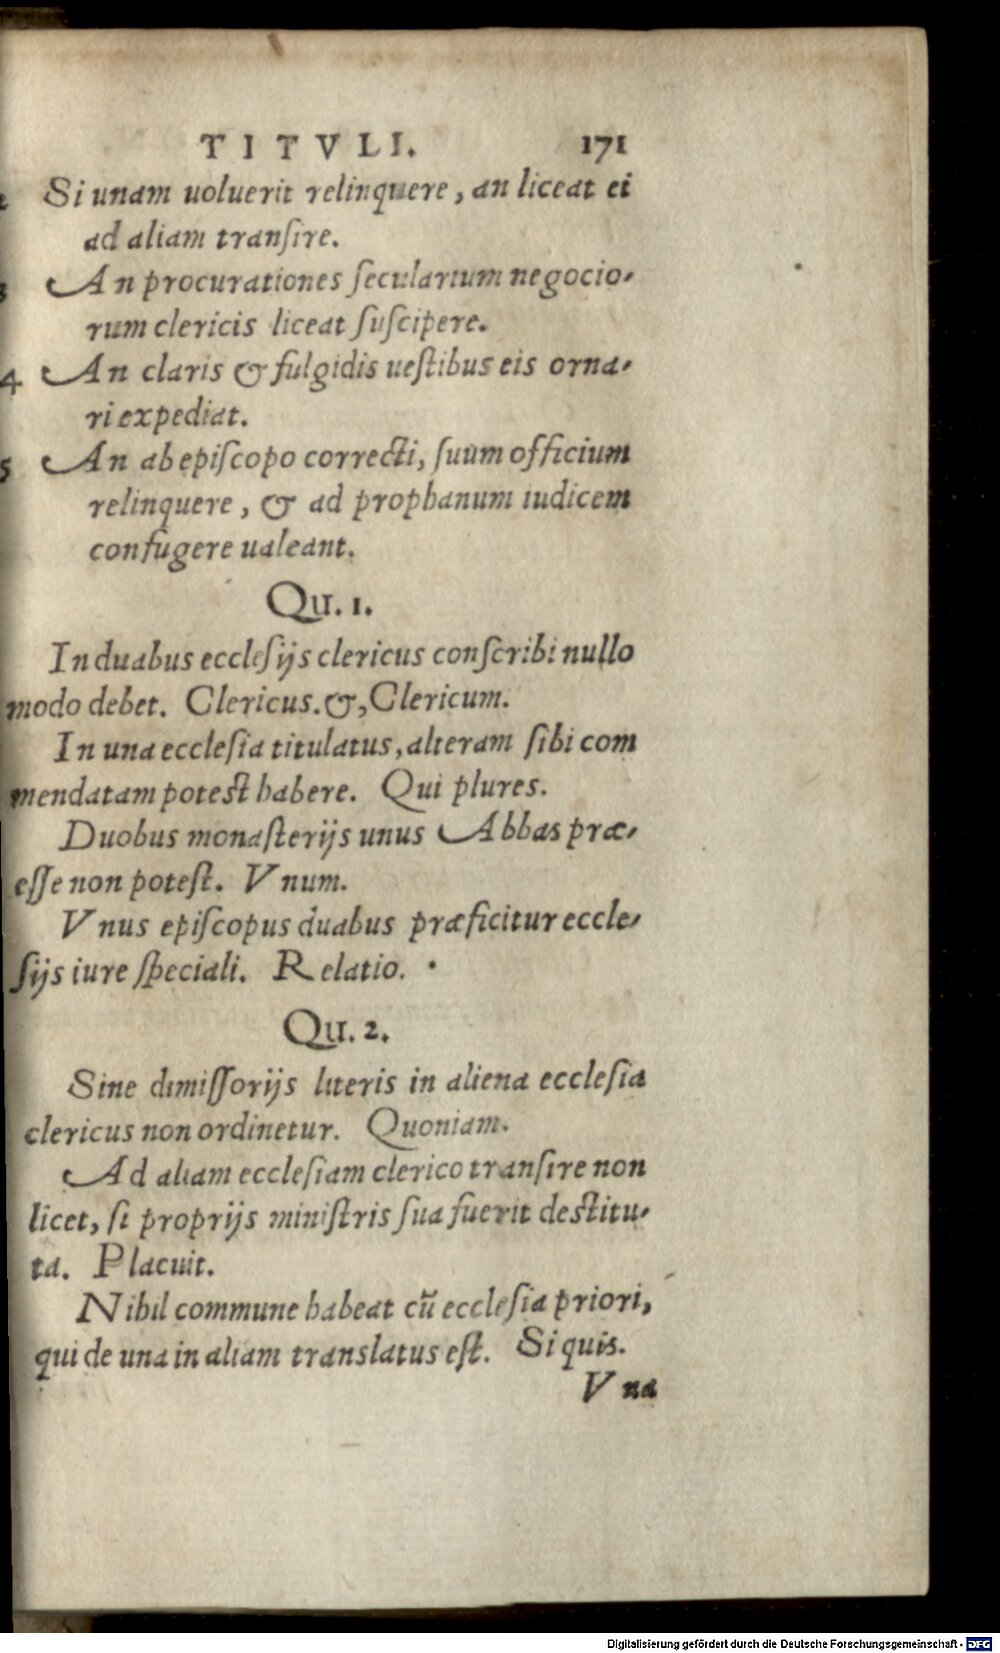 TITVLI. 171
2 Si unam uoluerit relinquere, an liceat ei
ad aliam transire.
3 An procurationes secularium negocio-
rum clericis liceat suscipere.
4 An claris & fulgidis uestibus eis orna-
ri expediat.
5 An ab episcopo correcti, suum officium
relinquere, & ad prophanum iudicem
confugere ualeant.
Qu. 1.
In duabus ecclesijs clericus conscribi nullo
modo debet. Clericus. &, Clericum.
In una ecclesia titulatus, alteram sibi com
mendatam potest habere. Qui plures.
Duobus monasterijs unus Abbas præ-
esse non potest. Vnum.
Vnus episcopus duabus præficitur eccle-
sijs iure speciali. Relatio.
Qu. 2.
Sine dimissorijs literis in aliena ecclesia
clericus non ordinetur. Quoniam.
Ad aliam ecclesiam clerico transire non
licet, si proprijs ministris sua fuerit destitu-
ta. Placuit.
Nihil commune habeat cũ ecclesia priori,
qui de una in aliam translatus est. Si quis.
Vna
Digitalisierung gefördert durch die Deutsche Forschungsgemeinschaft - DFG